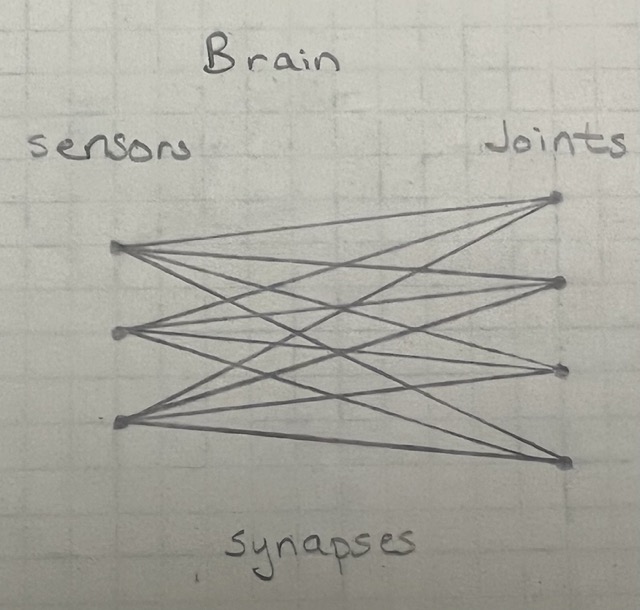 Brain
sensors
Joints
synapses